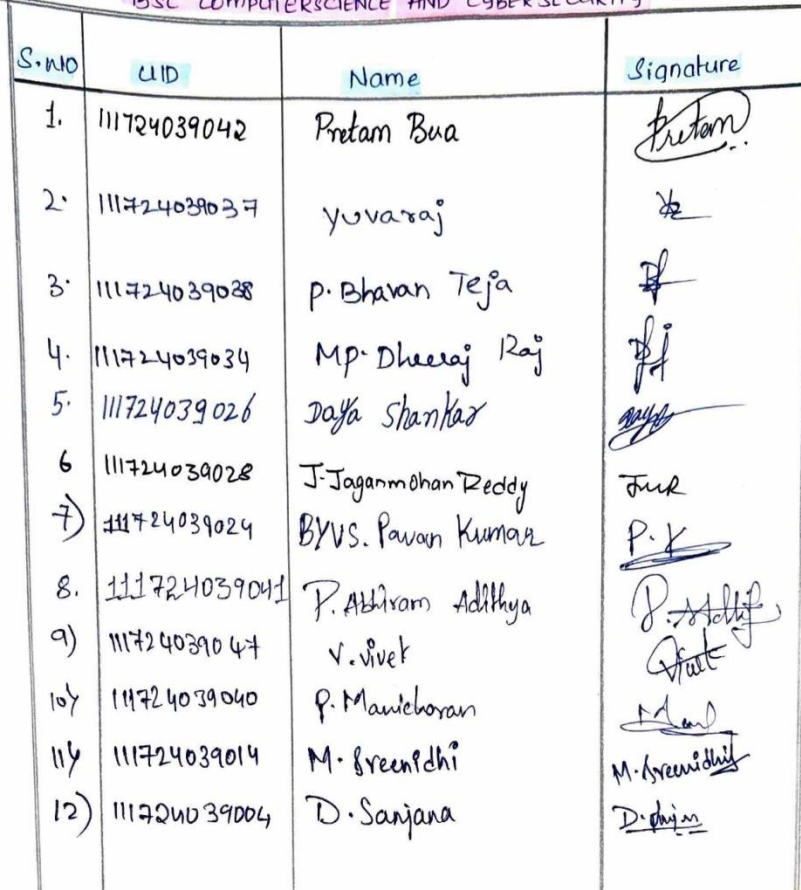 BSC COMPUTERSCIENCE AND CYBERSECURITY
S.NO UID Name Signature
1. 111724039042 Pretam Bua Pretam
2. 111724039037 Yuvaraj
3. 111724039038 P. Bhavan Teja
4. 111724039034 MP. Dheeraj Raj
5. 111724039026 Daya Shankar
6 111724039028 J. Jaganmohan Reddy JMR
7) 111724039024 BYVS. Pavan Kumar P.K
8. 111724039041 P. Abhiram Adithya
9) 111724039047 V. Vivek
10) 111724039040 P. Manicharan
11) 111724039014 M. Sreenidhi M. Sreenidhi
12) 111724039004 D. Sanjana